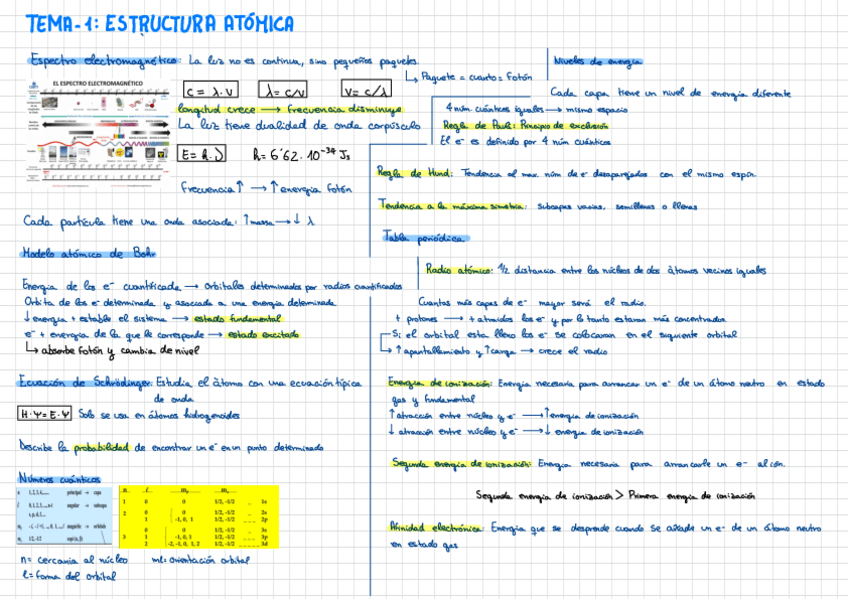 TEMA-1: ESTRUCTURA ATÓMICA
Espectro electromagnético: La luz no es continua, sino pequeños paquetes.
Paquete = cuanto = Fotón
EL ESPECTRO ELECTROMAGNÉTICO
C = λ · ν
λ = c/ν
ν = c/λ
longitud crece → frecuencia disminuye
La luz tiene dualidad de onda corpúsculo
E = h · ν
h = 6'62 · 10⁻³⁴ Js
Frecuencia ↑ → ↑ energía fotón
Cada partícula tiene una onda asociada: ↑ masa → ↓ λ
Modelo atómico de Bohr
Energía de los e⁻ cuantificada → orbitales determinados por radios cuantificados
Orbita de los e⁻ determinada y asociada a una energía determinada
↓ energía + estable el sistema → estado fundamental
e⁻ + energía de la que le corresponde → estado excitado
↳ absorbe fotón y cambia de nivel
Ecuación de Schrödinger: Estudia el átomo con una ecuación típica
de onda
H·Ψ = E·Ψ Solo se usa en átomos hidrogenoides
Describe la probabilidad de encontrar un e⁻ en un punto determinado
Números cuánticos
n 1,2,3,4,... principal → capa
n l
1 0 0 1/2, -1/2 1s
2 0 0 1/2, -1/2 2s
1 -1, 0, 1 1/2, -1/2 2p
3 0 0 1/2, -1/2 3s
1 -1, 0, 1 1/2, -1/2 3p
2 -2, -1, 0, 1, 2 1/2, -1/2 3d
n = cercanía al núcleo ml: orientación orbital
l = forma del orbital
Niveles de energía
Cada capa tiene un nivel de energía diferente
4 núm. cuánticos iguales → mismo espacio
Regla de Pauli: Principio de exclusión
El e⁻ es definido por 4 núm cuánticos
Regla de Hund: Tendencia al max. núm de e⁻ desaparejados con el mismo espín.
Tendencia a la máxima simetría: subcapas vacías, semillenas o llenas
Tabla periódica.
Radio atómico: 1/2 distancia entre los núcleos de dos átomos vecinos iguales
Cuantas más capas de e⁻ mayor será el radio.
+ protones → + atraidos los e⁻ y por lo tanto estaran más concentrados
Si el orbital esta lleno los e⁻ se colocaran en el siguiente orbital
↳ ↑ apantallamiento y ↑ carga → crece el radio
Energía de ionización: Energía necesaria para arrancar un e⁻ de un átomo neutro en estado
gas y fundamental
↑ atracción entre núcleo y e⁻ → ↑ energía de ionización
↓ atracción entre núcleo y e⁻ → ↓ energía de ionización
Segunda energía de ionización: Energía necesaria para arrancarle un e⁻ al ión.
Segunda energía de ionización > Primera energía de ionización
Afinidad electrónica: Energía que se desprende cuando se añade un e⁻ de un átomo neutro
en estado gas